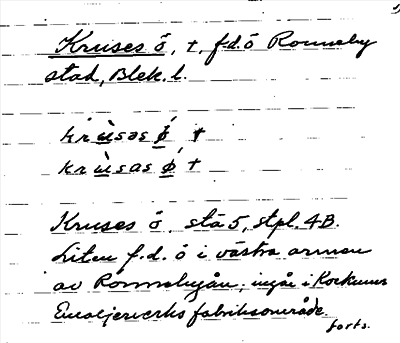 Kruses ö, †, f.d. ö Ronneby
stad, Blek. l.
krùsəs ǿ †
krùsas ǿ †
Kruses ö, sta 5, stpl. 4B.
Liten f.d. ö i västra armen
av Ronnebyån; ingår i Kockums
Emaljerverks fabriksområde.
forts.